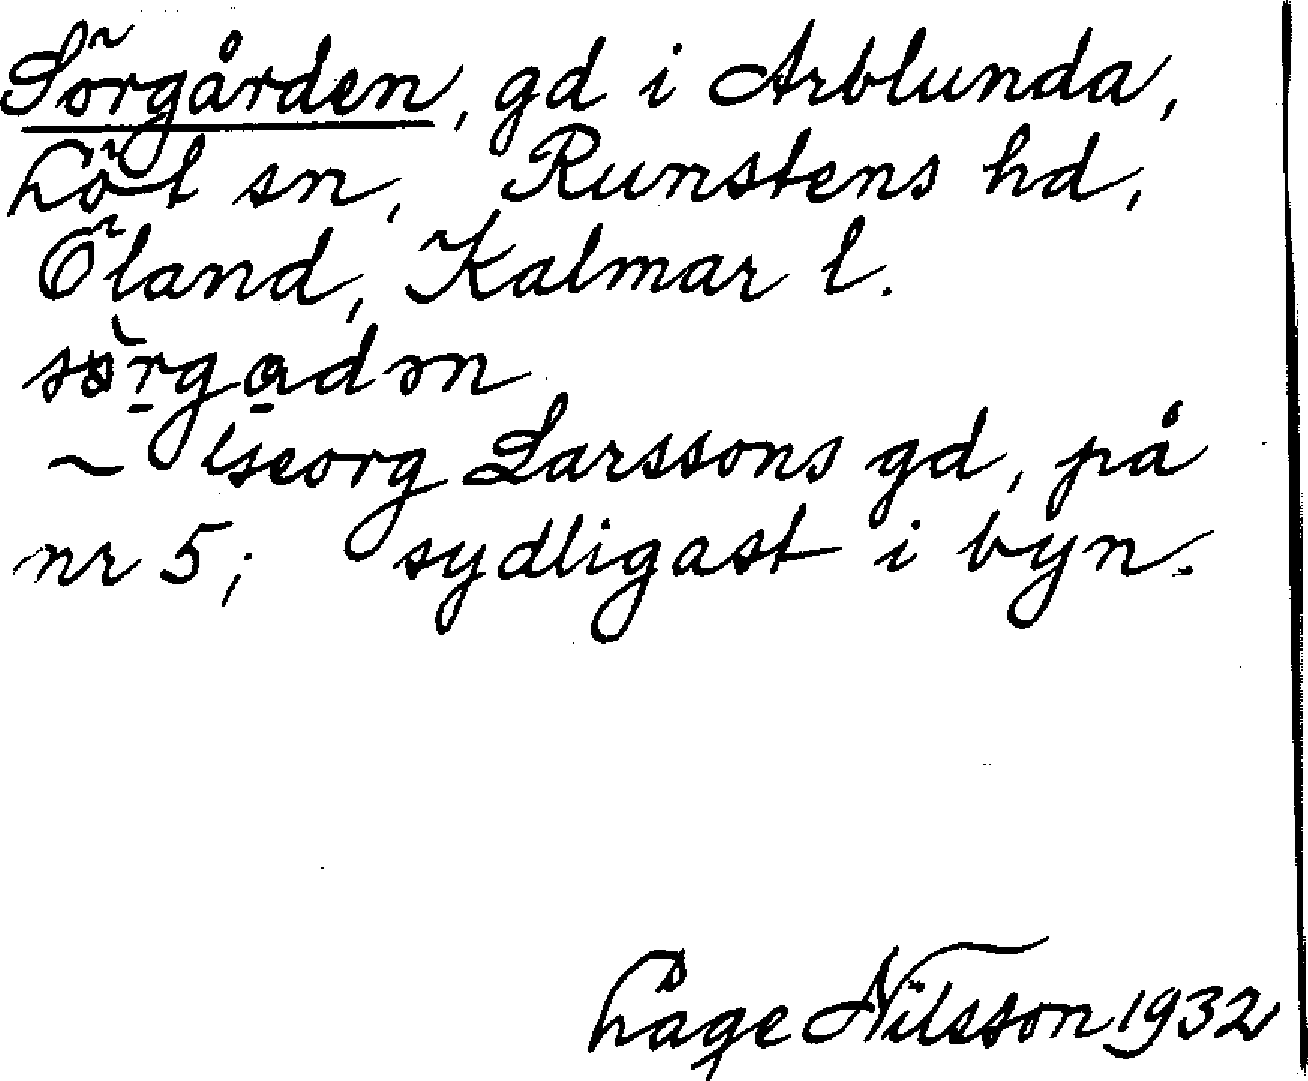 Sörgården, gd i Arblunda,
Löt sn, Runstens hd,
Öland, Kalmar l.
sörgadən
~ Georg Larssons gd, på
nr 5; sydligast i byn.
Låge Nilsson 1932